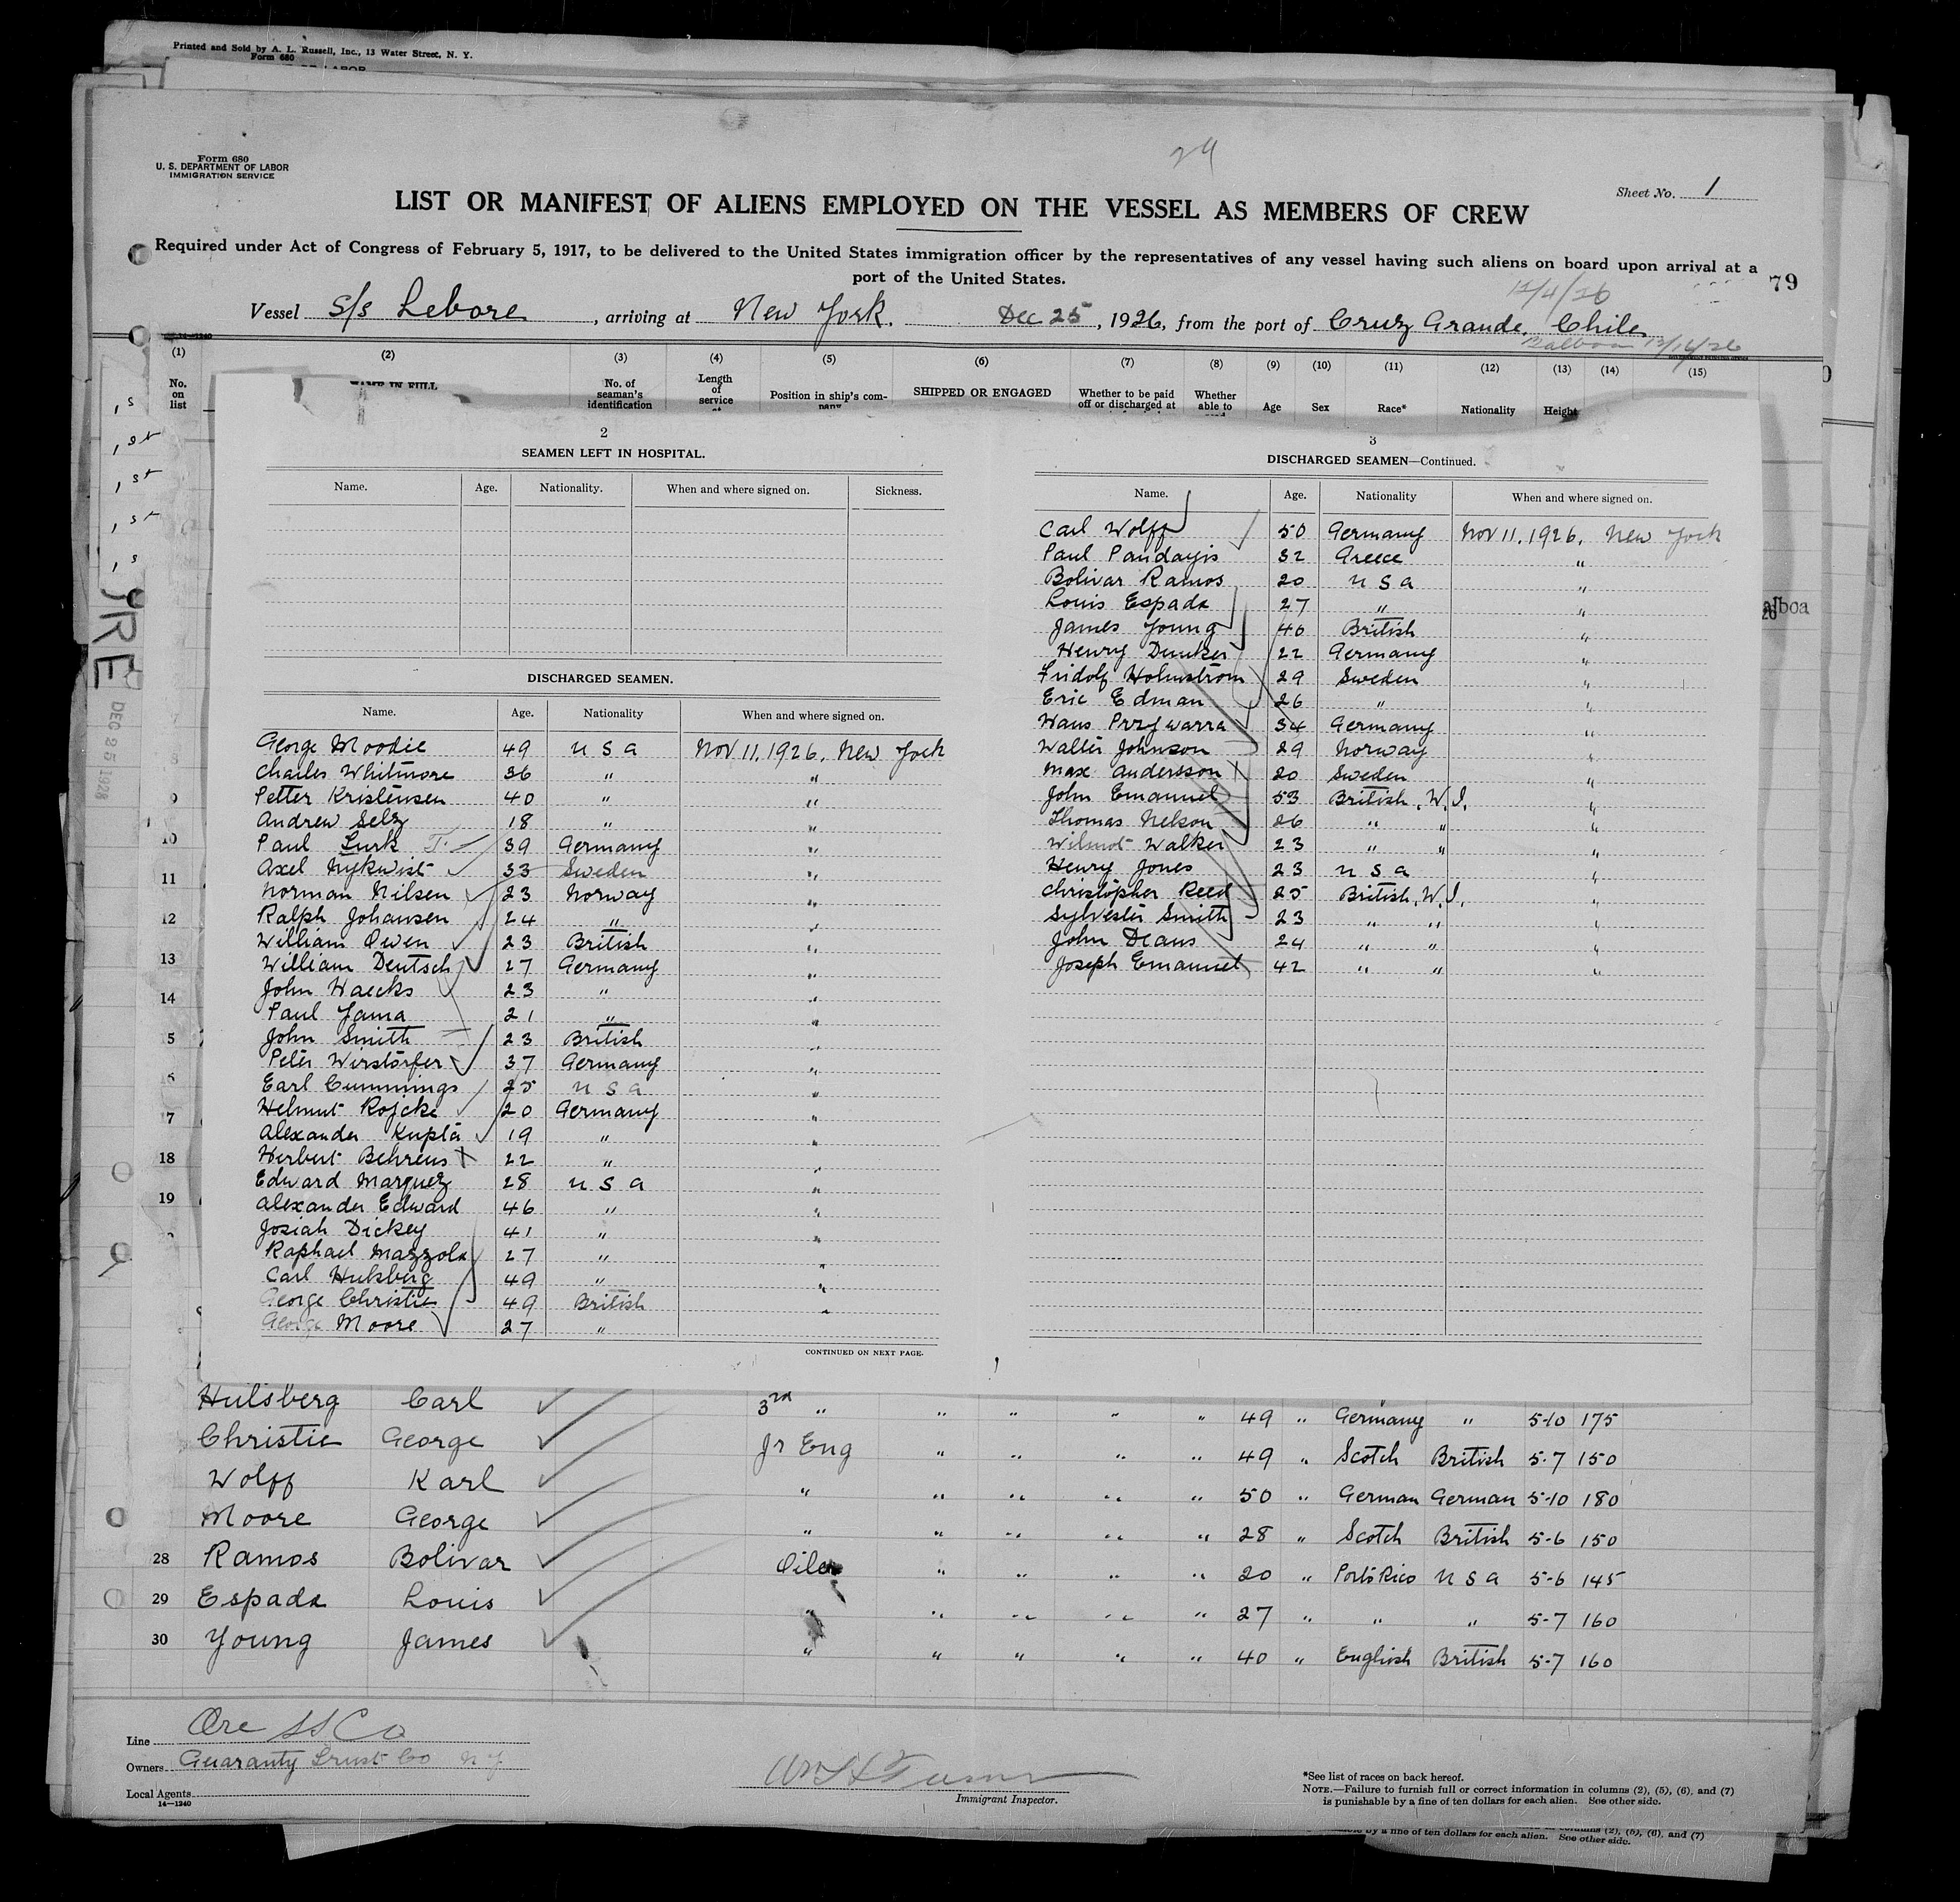 Printed and Sold by A. L. Russell, Inc., 13 Water Street, N. Y.
Form 680
Form 680
U. S. DEPARTMENT OF LABOR
IMMIGRATION SERVICE
29
Sheet No. 1
LIST OR MANIFEST OF ALIENS EMPLOYED ON THE VESSEL AS MEMBERS OF CREW
Required under Act of Congress of February 5, 1917, to be delivered to the United States immigration officer by the representatives of any vessel having such aliens on board upon arrival at a
port of the United States.
79
12/4/26
Vessel S/s Lebore, arriving at New York. Dec 25, 1926, from the port of Cruz Grande, Chile
Balboa 12/16/26
14-1240
(1) (2) (3) (4) (5) (6) (7) (8) (9) (10) (11) (12) (13) (14) (15)
No. on list
NAME IN FULL
No. of seaman's identification
Length of service
Position in ship's com-
SHIPPED OR ENGAGED
Whether to be paid off or discharged at
Whether able to
Age
Sex
Race*
Nationality
Height
2
SEAMEN LEFT IN HOSPITAL.
Name. Age. Nationality. When and where signed on. Sickness.
DISCHARGED SEAMEN.
Name. Age. Nationality When and where signed on.
George Moodie 49 U S A Nov 11, 1926, New York
Charles Whitmore 36 " "
Petter Kristensen 40 " "
Andrew Selz 18 " "
Paul Lurk T. 39 Germany "
Axel Nykwist 33 Sweden "
Norman Nilsen 23 Norway "
Ralph Johansen 24 " "
William Owen 23 British "
William Deutsch 27 Germany "
John Haecks 23 " "
Paul Jama 21 " "
John Smith 23 British "
Peter Wirstorfer 37 Germany "
Earl Cummings 25 U S A "
Helmut Rojcke 20 Germany "
Alexander Kupla 19 " "
Herbert Behrens X 22 " "
Edward Marquez 28 U S A "
Alexander Edward 46 " "
Josiah Dickey 41 " "
Raphael Mazzola 27 " "
Carl Hulsberg 49 " "
George Christie 49 British "
George Moore 27 " "
CONTINUED ON NEXT PAGE.
3
DISCHARGED SEAMEN—Continued.
Name. Age. Nationality When and where signed on.
Carl Wolff 50 Germany Nov 11, 1926, New York
Paul Pandayis 32 Greece "
Bolivar Ramos 20 U S A "
Louis Espada 27 " "
James Young 40 British "
Henry Dunker 22 Germany "
Fridolf Holmstrom 29 Sweden "
Eric Edman 26 " "
Hans Przywarra 34 Germany "
Walter Johnson 29 Norway "
Max Andersson X 20 Sweden "
John Emanuel 53 British, W. I. "
Thomas Nelson 26 " " "
Wilmot Walker 23 " " "
Henry Jones 23 U S A "
Christopher Reed 25 British, W. I. "
Sylvester Smith 23 " " "
John Deans 24 " " "
Joseph Emanuel 42 " " "
DEC 25 1926
10
11
12
13
14
5
7
18
19
Hulsberg Carl 3rd " " " " " 49 " Germany " 5-10 175
Christie George Jr Eng " " " " 49 " Scotch British 5-7 150
Wolff Karl " " " " " 50 " German German 5-10 180
Moore George " " " " " 28 " Scotch British 5-6 150
28 Ramos Bolivar Oiler " " " " 20 " Porto Rico U S A 5-6 145
29 Espada Louis " " " " " 27 " " " 5-7 160
30 Young James " " " " " 40 " English British 5-7 160
Line Ore SS Co
Owners Guaranty Trust Co N Y
Local Agents
14—1240
Immigrant Inspector.
*See list of races on back hereof.
NOTE.—Failure to furnish full or correct information in columns (2), (5), (6), and (7)
is punishable by a fine of ten dollars for each alien. See other side.
by a fine of ten dollars for each alien. See other side.
columns (2), (5), (6), and (7)